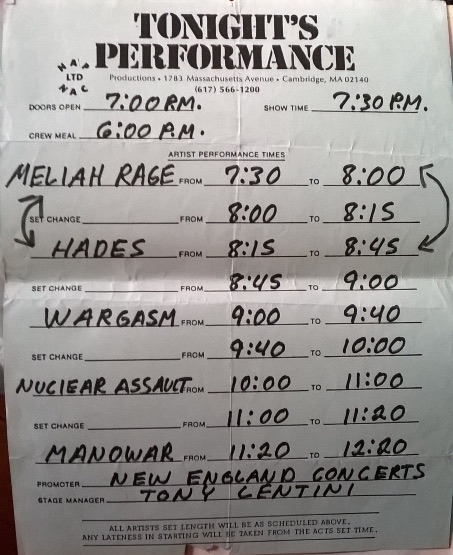 TONIGHT'S
PERFORMANCE
LTD
Productions • 1783 Massachusetts Avenue • Cambridge, MA 02140
(617) 566-1200
DOORS OPEN 7:00 P.M. SHOW TIME 7:30 P.M.
CREW MEAL 6:00 P.M.
ARTIST PERFORMANCE TIMES
MELIAH RAGE FROM 7:30 TO 8:00
SET CHANGE FROM 8:00 TO 8:15
HADES FROM 8:15 TO 8:45
SET CHANGE FROM 8:45 TO 9:00
WARGASM FROM 9:00 TO 9:40
SET CHANGE FROM 9:40 TO 10:00
NUCLEAR ASSAULT FROM 10:00 TO 11:00
SET CHANGE FROM 11:00 TO 11:20
MANOWAR FROM 11:20 TO 12:20
PROMOTER NEW ENGLAND CONCERTS
STAGE MANAGER TONY LENTINI
ALL ARTISTS SET LENGTH WILL BE AS SCHEDULED ABOVE.
ANY LATENESS IN STARTING WILL BE TAKEN FROM THE ACTS SET TIME.